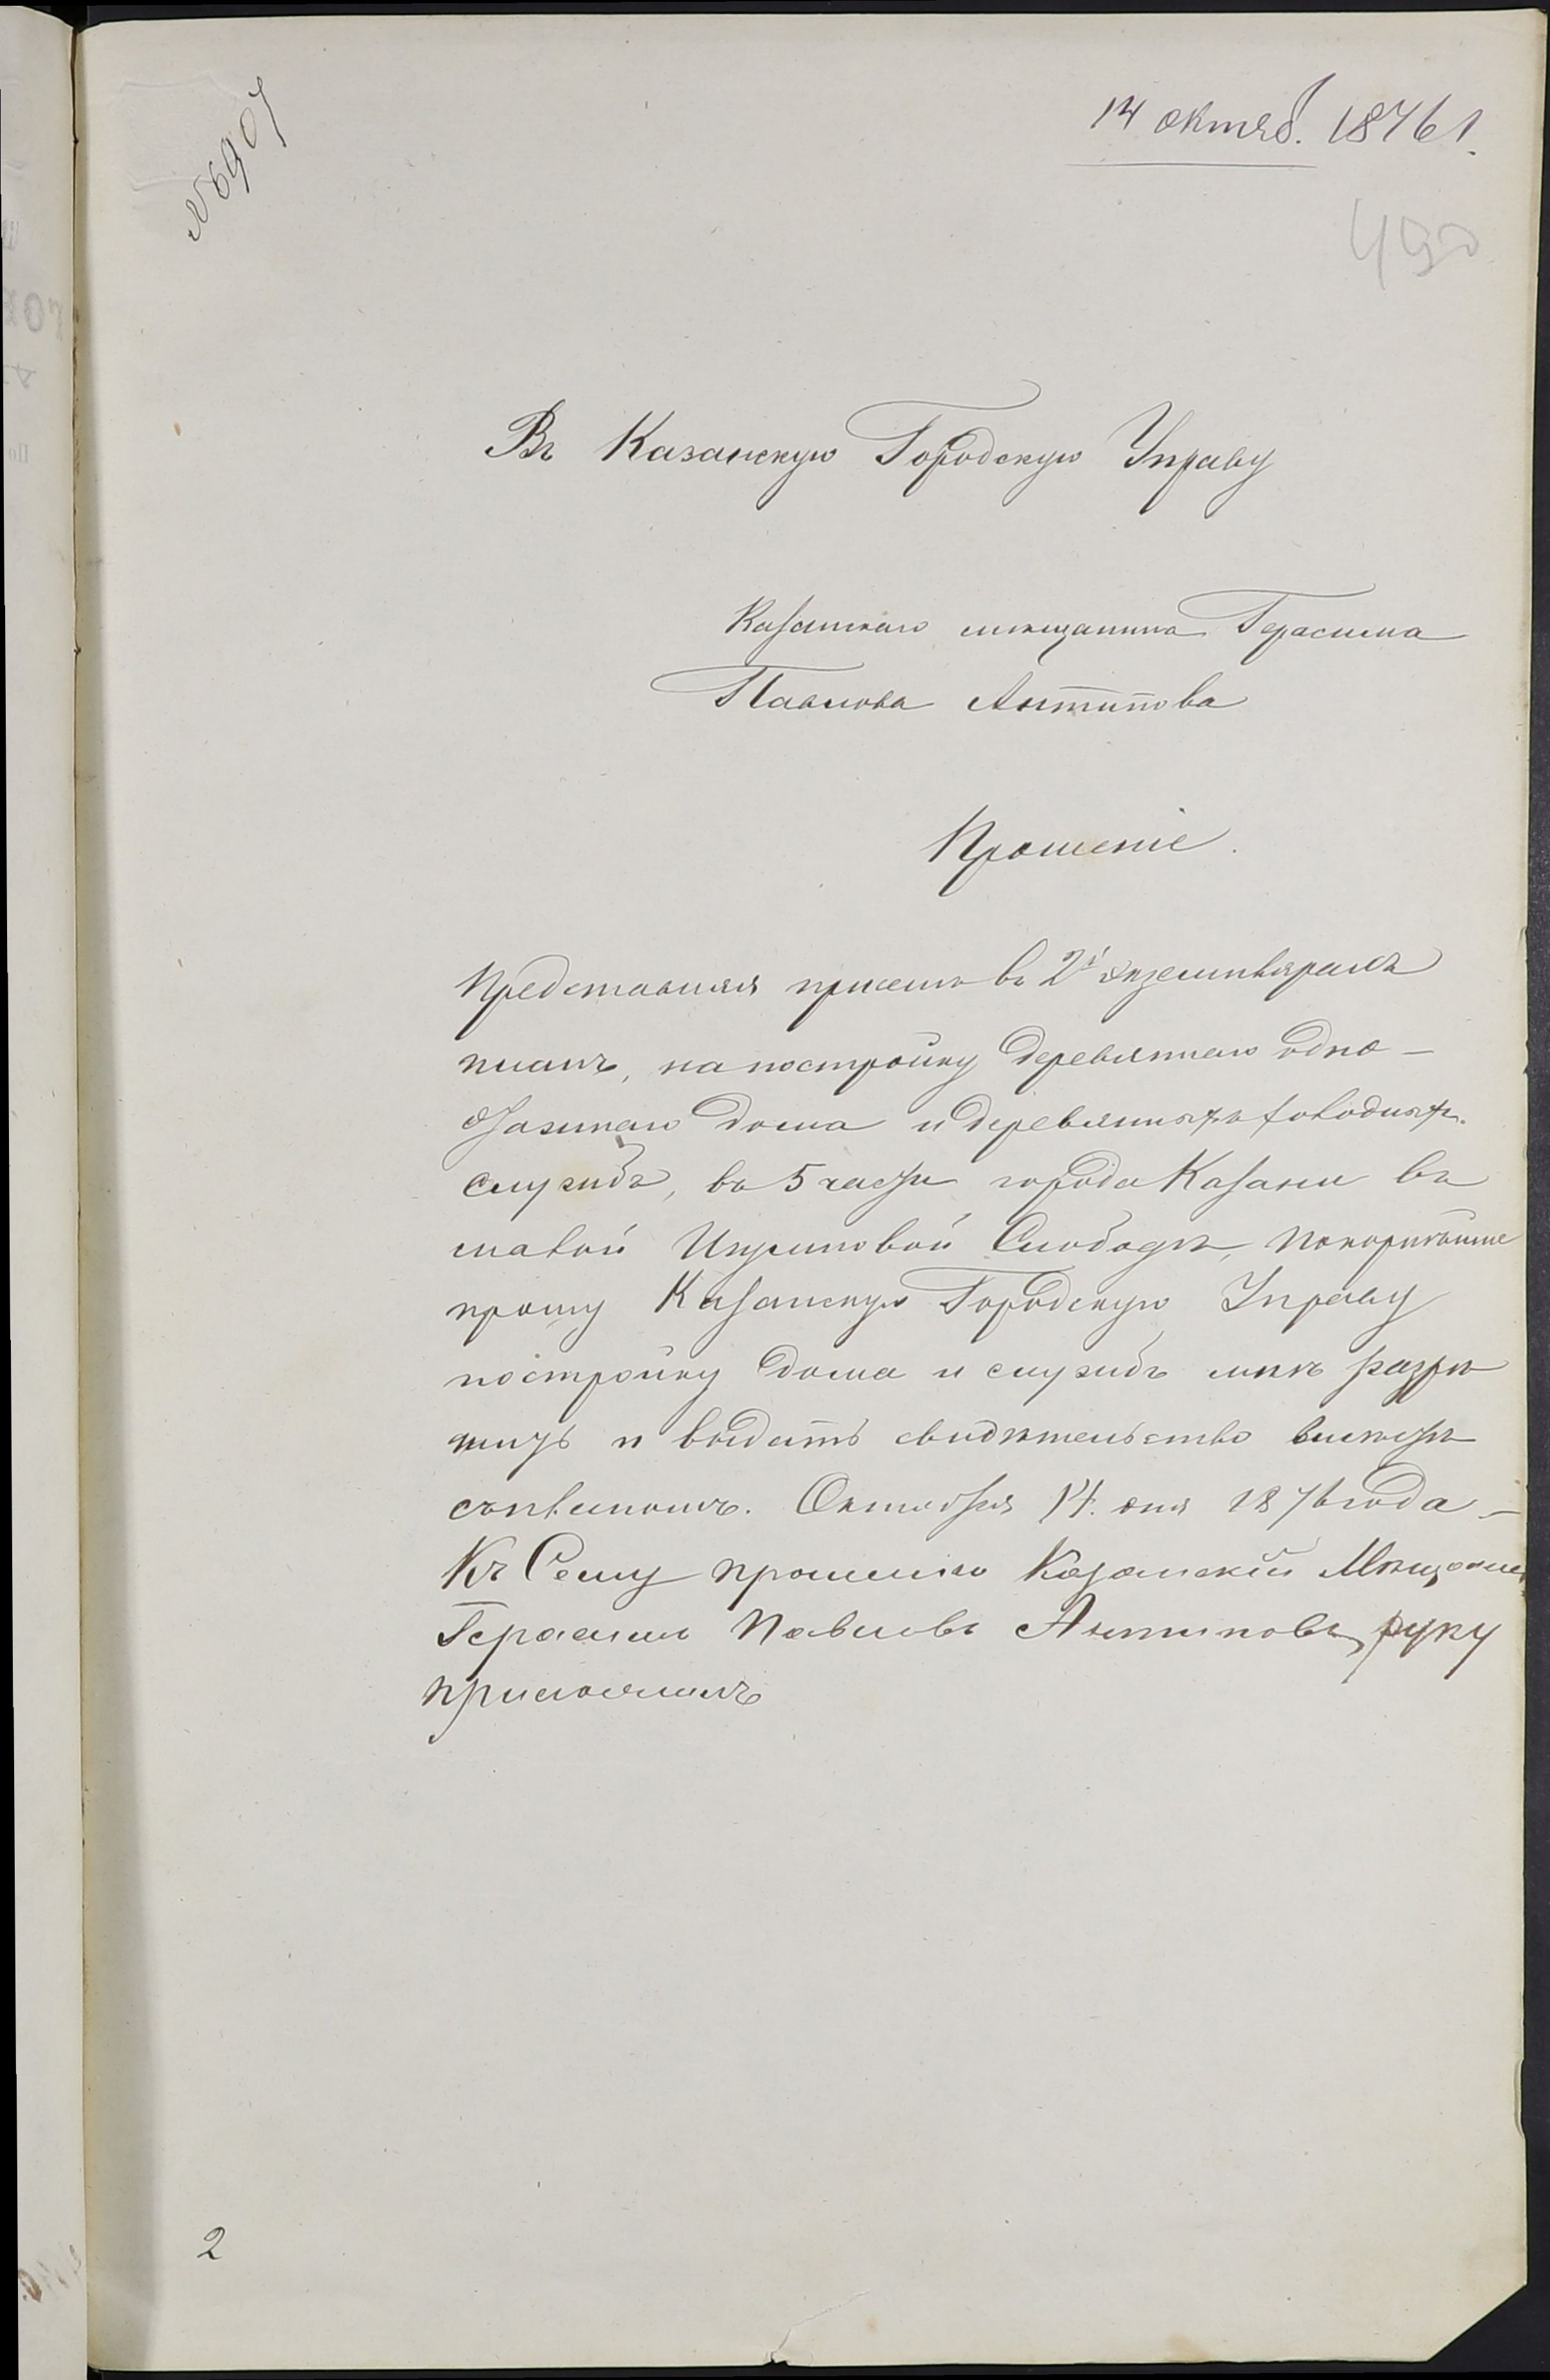 № 6907
14 октяб. 1876 г.
490
Въ Казанскую Городскую Управу
Казанскаго мѣщанина Герасима
Павлова Антипова
Прошеніе.
Представляя присемъ въ 2х экземплярахъ
планъ, на постройку деревяннаго одно-
этажнаго дома и деревянныхъ холодныхъ
службъ, въ 5 части города Казани въ
малой Игумновой Слободѣ, покорнѣйше
прошу Казанскую Городскую Управу
постройку дома и службъ мнѣ разрѣ
шить и выдать свидѣтельство вмѣстѣ
съ планомъ. Октября 14 дня 1876 года –
Къ Сему прошенію Казанскій Мѣщанинъ
Герасимъ Павловъ Антиповъ руку
приложилъ
2